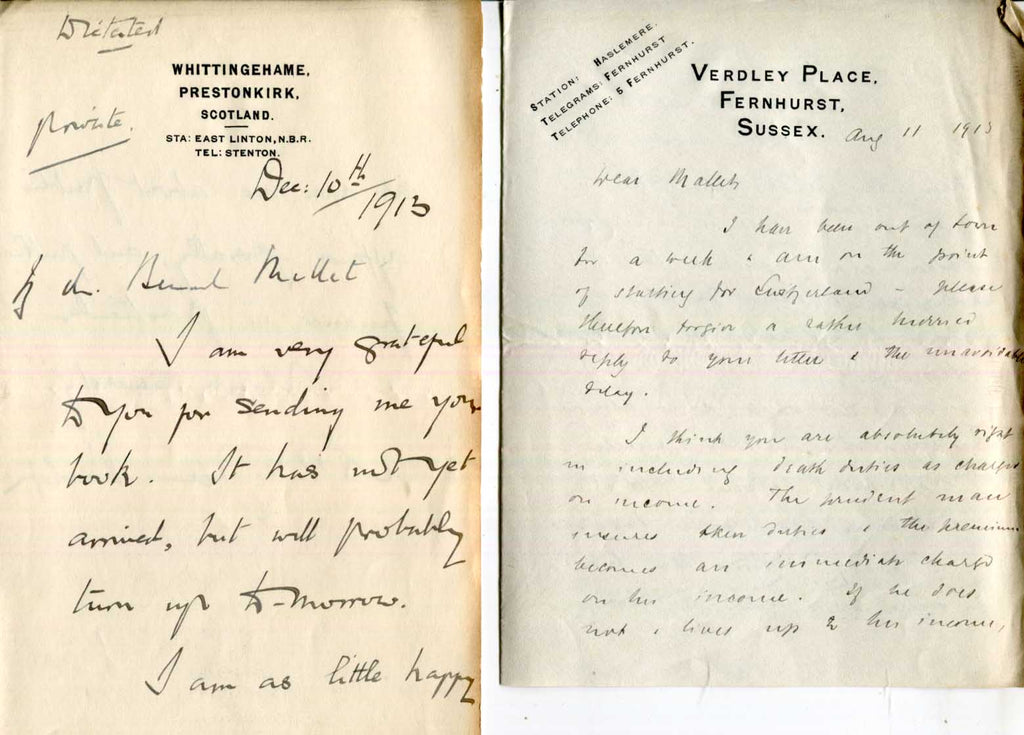 Dictated
WHITTINGEHAME,
PRESTONKIRK,
SCOTLAND.
STA: EAST LINTON, N.B.R.
TEL: STENTON.
Private.
Dec: 10th
1913
My dr. Bernard Mallet
I am very grateful
to you for sending me your
book. It has not yet
arrived, but will probably
turn up to-morrow.
I am as little happy
STATION: HASLEMERE.
TELEGRAMS: FERNHURST
TELEPHONE: 5 FERNHURST.
VERDLEY PLACE,
FERNHURST,
SUSSEX.
Aug 11 1913
Dear Mallet
I have been out of town
for a week & am on the point
of starting for Switzerland - please
therefore forgive a rather hurried
reply to your letter & the unavoidable
delay.
I think you are absolutely right
in including death duties as charges
on income. The prudent man
insures these duties & the premium
becomes an immediate charge
on his income. If he does
not & lives up to his income,